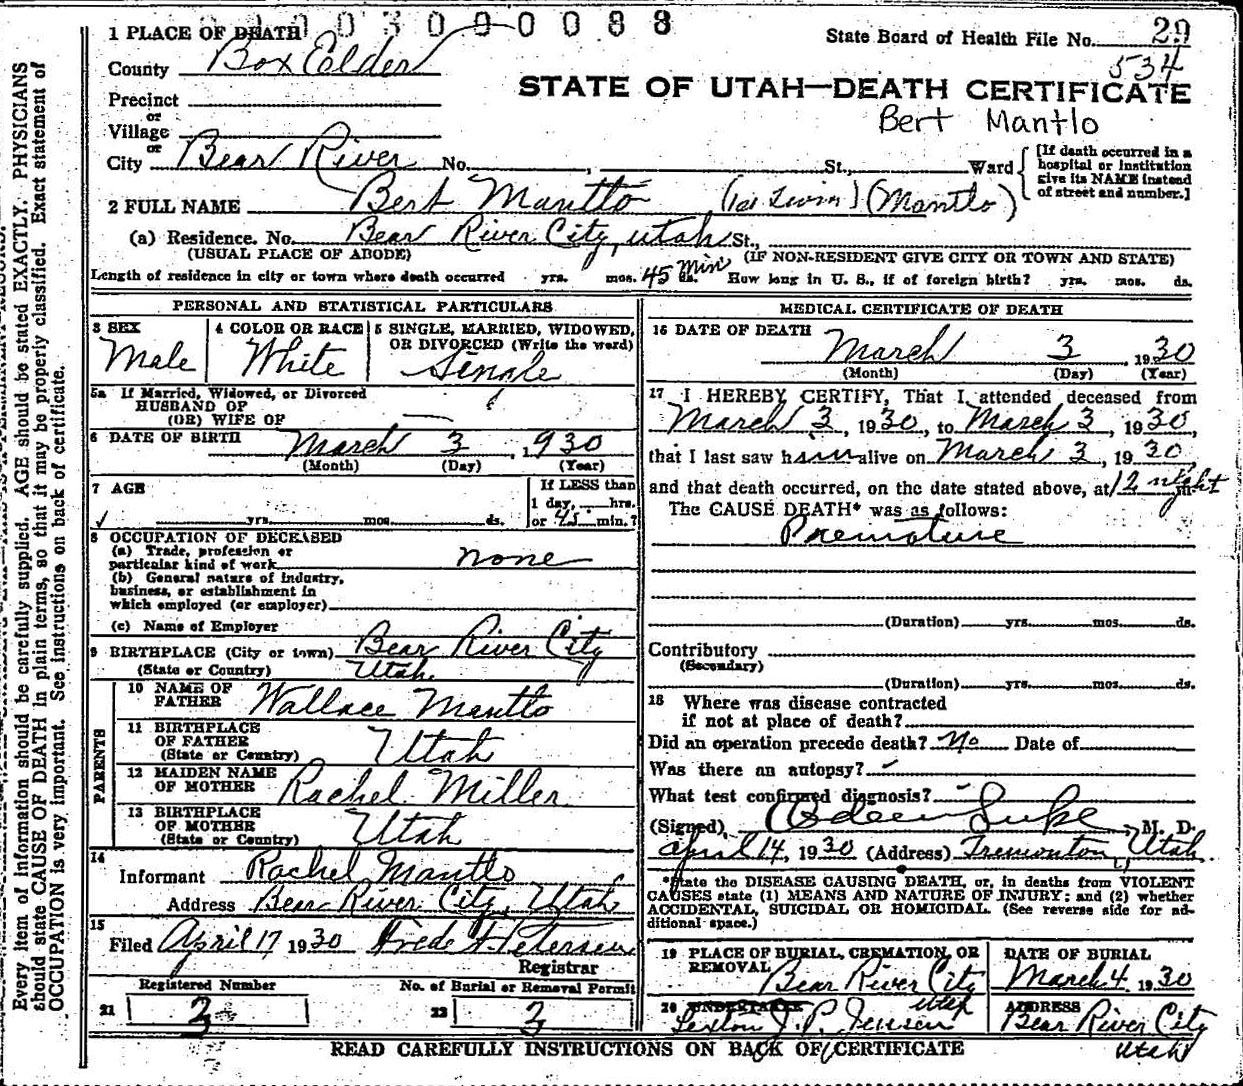 0 3 0 0 0 0 8 8
1 PLACE OF DEATH
County Box Elder
State Board of Health File No. 29
534
STATE OF UTAH—DEATH CERTIFICATE
Precinct
or
Village
or
Bert Mantlo
City Bear River No. , St., Ward
[If death occurred in a hospital or institution give its NAME instead of street and number.]
2 FULL NAME Bert Mantlo (1st Twin) (Mantlo)
(a) Residence. No. Bear River City, Utah St.,
(USUAL PLACE OF ABODE) (IF NON-RESIDENT GIVE CITY OR TOWN AND STATE)
Length of residence in city or town where death occurred yrs. mos. 45 Min ds. How long in U. S., if of foreign birth? yrs. mos. ds.
PERSONAL AND STATISTICAL PARTICULARS
3 SEX
Male
4 COLOR OR RACE
White
5 SINGLE, MARRIED, WIDOWED,
OR DIVORCED (Write the word)
Single
5a If Married, Widowed, or Divorced
HUSBAND OF
(OR) WIFE OF
6 DATE OF BIRTH March 3, 1930
(Month) (Day) (Year)
7 AGE
yrs. mos. ds.
If LESS than
1 day, hrs.
or 45 min.?
8 OCCUPATION OF DECEASED
(a) Trade, profession or
particular kind of work none
(b) General nature of industry,
business, or establishment in
which employed (or employer)
(c) Name of Employer
9 BIRTHPLACE (City or town) Bear River City
(State or Country) Utah
PARENTS
10 NAME OF
FATHER Wallace Mantlo
11 BIRTHPLACE
OF FATHER
(State or Country) Utah
12 MAIDEN NAME
OF MOTHER Rachel Miller
13 BIRTHPLACE
OF MOTHER
(State or Country) Utah
14
Informant Rachel Mantlo
Address Bear River City, Utah
15
Filed April 17 1930
Registrar
Registered Number No. of Burial or Removal Permit
21 3 22 3
MEDICAL CERTIFICATE OF DEATH
16 DATE OF DEATH
March 3 1930
(Month) (Day) (Year)
17 I HEREBY CERTIFY, That I attended deceased from
March 3, 1930, to March 3, 1930,
that I last saw him alive on March 3, 1930,
and that death occurred, on the date stated above, at 12 night m.
The CAUSE DEATH* was as follows:
Premature
(Duration) yrs. mos. ds.
Contributory
(Secondary)
(Duration) yrs. mos. ds.
18 Where was disease contracted
if not at place of death?
Did an operation precede death? No Date of
Was there an autopsy? -
What test confirmed diagnosis? -
(Signed) Odeen Luke, M. D.
April 14, 1930 (Address) Tremonton, Utah.
*State the DISEASE CAUSING DEATH, or, in deaths from VIOLENT
CAUSES state (1) MEANS AND NATURE OF INJURY; and (2) whether
ACCIDENTAL, SUICIDAL OR HOMICIDAL. (See reverse side for ad-
ditional space.)
19 PLACE OF BURIAL, CREMATION, OR
REMOVAL Bear River City
Utah
DATE OF BURIAL
March 4 1930
20 UNDERTAKER
Sexton J. P. Jensen
ADDRESS
Bear River City
Utah
READ CAREFULLY INSTRUCTIONS ON BACK OF CERTIFICATE
Every item of information should be carefully supplied. AGE should be stated EXACTLY. PHYSICIANS
should state CAUSE OF DEATH in plain terms, so that it may be properly classified. Exact statement of
OCCUPATION is very important. See instructions on back of certificate.